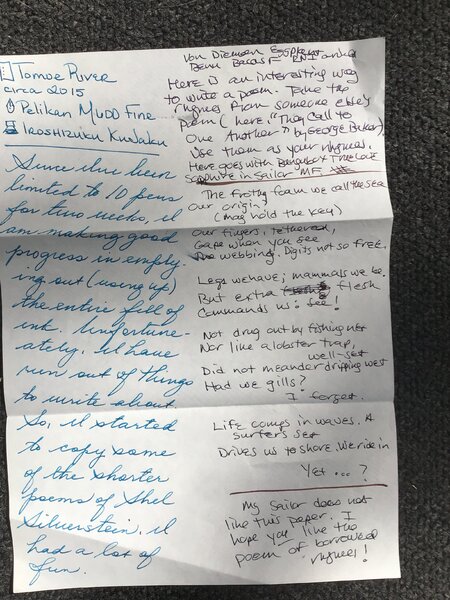 Tomoe River
circa 2015
Pelikan M400 Fine
Iroshizuku Kujaku
Since I've been
limited to 10 pens
for two weeks, I
am making good
progress in empty-
ing out (using up)
the entire fill of
ink. Unfortun-
ately, I have
run out of things
to write about.
So, I started
to copy some
of the shorter
poems of Shel
Silverstein. I
had a lot of
fun.
Von Diemen
Here is an interesting way
to write a poem. Take the
rhymes from someone else's
poem (here "They Call to
One Another" by George Barker).
Use them as your rhymes.
Here goes with
in Sailor MF
The frothy foam we call the sea
Our origin?
(may hold the key)
Our fingers, tethered,
Gape when you see
webbing. Digits not so free.
Legs we have; mammals we be.
But extra flesh
Commands us: see!
Not drug out by fishing net
Nor like a lobster trap,
well-set
Did not meander dripping wet
Had we gills?
I forget.
Life comes in waves. A
surfer's set
Drives us to shore. We ride in
Yet ...?
My Sailor does not
like this paper. I
hope you like the
poem of borrowed
rhymes!